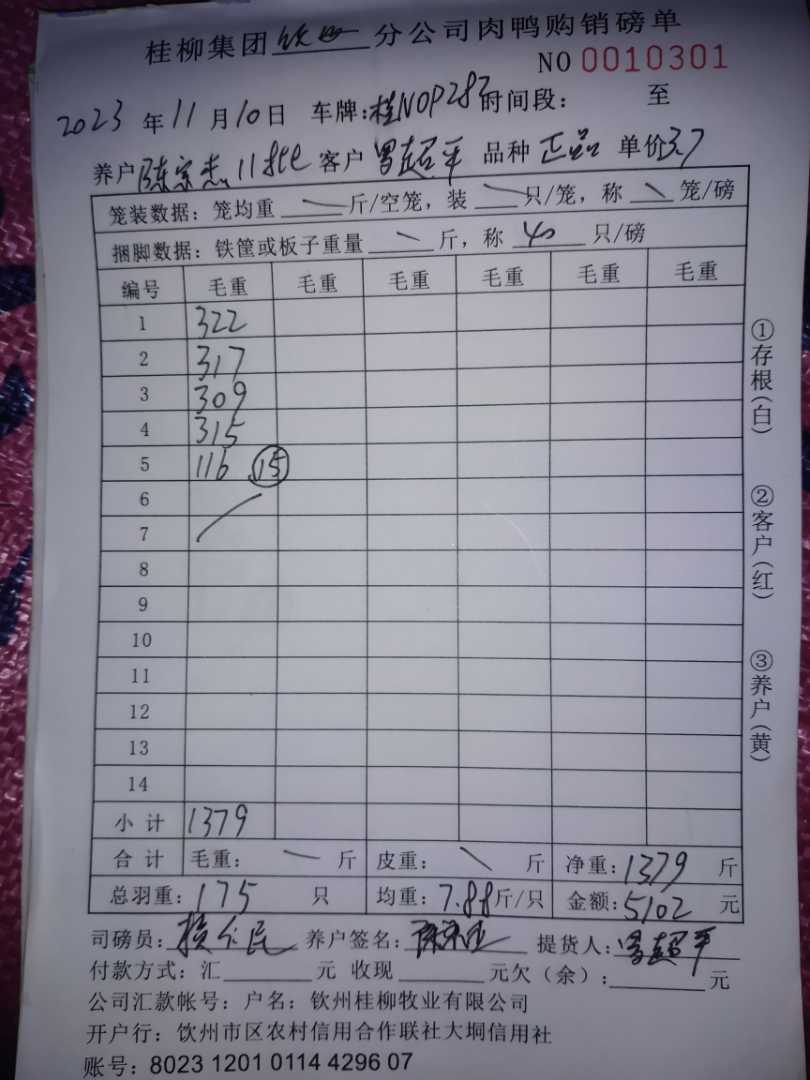 桂柳集团钦州分公司肉鸭购销磅单
NO 0010301
2023年11月10日 车牌:桂N0P287 时间段: 至
养户陈宗杰11批 客户 曾超平 品种 正品 单价3.7
笼装数据: 笼均重 斤/空笼, 装 只/笼, 称 笼/磅
捆脚数据: 铁筐或板子重量 斤, 称 40 只/磅
编号 毛重 毛重 毛重 毛重 毛重 毛重
1 322
2 317
3 309
4 315
5 116 15
6
7
8
9
10
11
12
13
14
小计 1379
合计 毛重: 斤 皮重: 斤 净重: 1379 斤
总羽重: 175 只 均重: 7.88斤/只 金额: 5102 元
司磅员: 养户签名: 提货人: 曾超平
付款方式: 汇 元 收现 元欠(余): 元
公司汇款帐号: 户名: 钦州桂柳牧业有限公司
开户行: 钦州市区农村信用合作联社大垌信用社
账号: 8023 1201 0114 4296 07
①存根(白)
②客户(红)
③养户(黄)